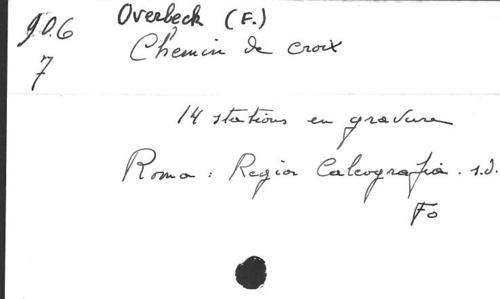 906
7
Overbeck (F.)
Chemin de croix
14 stations en gravure
Roma : Regia Calcografia. s.d.
Fo